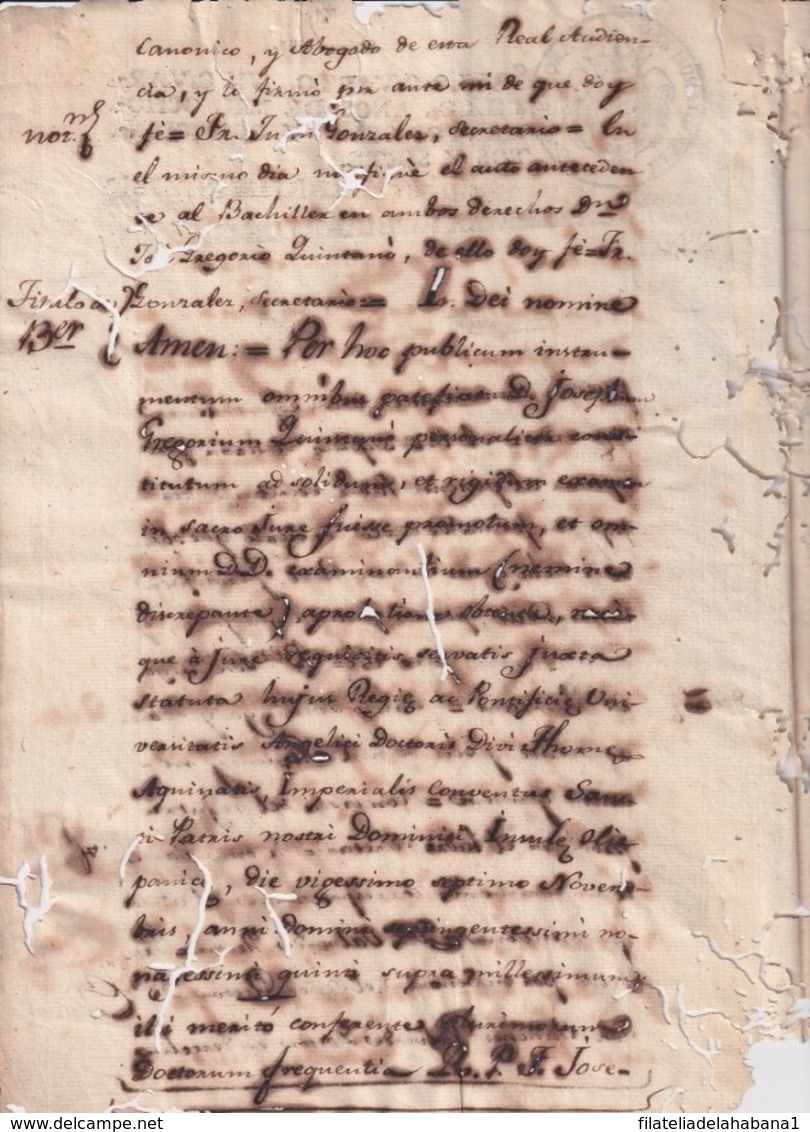 Canonico, y Abogado de esta Real Audien-
cia, y lo firmò por ante mi de que doy
not.n
fè = Fr. Juan Gonzalez, secretario = En
el mismo dia notifiquè el auto anteceden
te al Bachiller en ambos derechos Dn
Gregorio Quintano, de ello doy fè = Fr.
Titulo de
Gonzalez, secretario = In Dei nomine
Ber
Amen: = Per hoc publicum instru-
mentum omnibus patefiat D. Josephum
Gregorium Quintano personaliter consti-
titutum ad solidum, et rigidum examen
in sacro Jure fuisse promotum, et om-
nium DD. examinantium (nemine
discrepante) aprobatione
que à Jure requisitis servatis juxta
statuta hujus Regię ac Pontificię Uni-
versitatis Angelici Doctoris Divi Thomę
Aquinatis, Imperialis Conventus Sanc-
ti Patris nostri Dominici Insulę His-
panicę, die vigessimo septimo Novem-
bris anni domini septingentessimi no-
nagessimi quinti supra millessimum
illi meritó conferente plurimorum
Doctorum frequentia R. P. F. Jose-
filateliadelahabana1